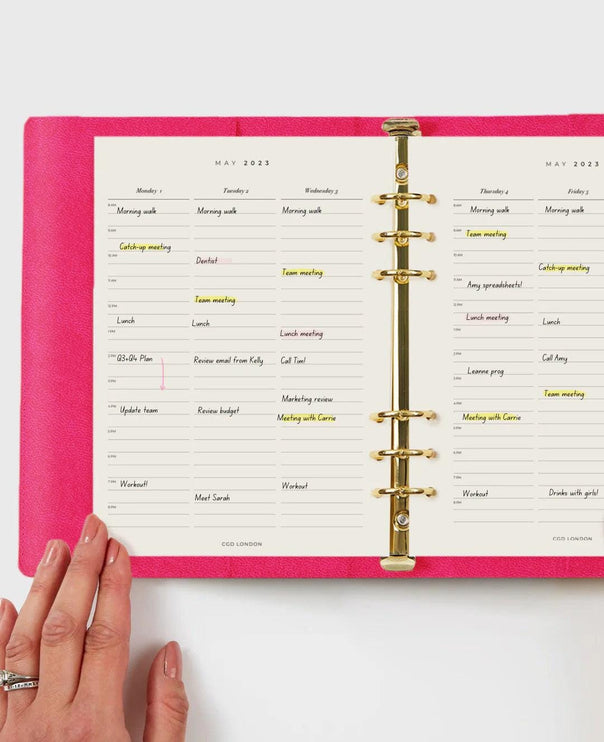 MAY 2023
Monday 1
Morning walk
Catch-up meeting
Lunch
Q3+Q4 Plan
Update team
Workout!
Tuesday 2
Morning walk
Dentist
Team meeting
Lunch
Review email from Kelly
Review budget
Meet Sarah
Wednesday 3
Morning walk
Team meeting
Lunch meeting
Call Tim!
Marketing review
Meeting with Carrie
Workout
CGD LONDON
MAY 2023
Thursday 4
Morning walk
Team meeting
Amy spreadsheets!
Lunch meeting
Leanne prog
Meeting with Carrie
Workout
Friday 5
Morning walk
Catch-up meeting
Lunch
Call Amy
Team meeting
Drinks with girls!
CGD LONDON